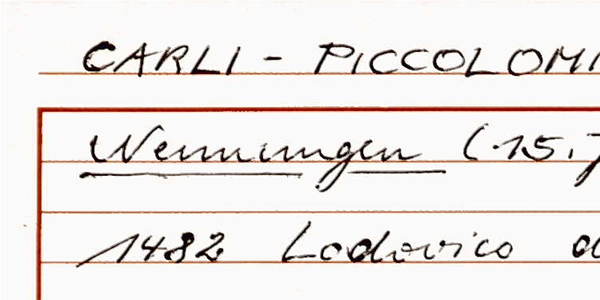 CARLI - PICCOLOMI
Nennungen (15.J
1482 Lodovico d